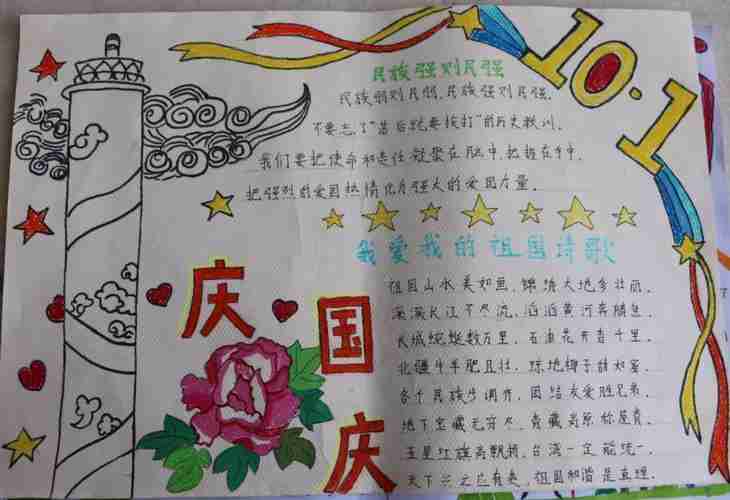 10·1
民族强则民强
民族弱则民弱,民族强则民强。
不要忘了"落后就要挨打"的历史教训,
我们要把使命和责任凝聚在脑中,把握在手中,
把强烈的爱国热情化为强大的爱国力量。
我爱我的祖国诗歌
祖国山水美如画,锦绣大地多壮丽。
滚滚长江不尽流,滔滔黄河奔腾急。
长城蜿蜒数万里,石油花开香千里。
北疆牛羊肥且壮,琼地椰子甜如蜜。
各个民族步调齐,团结友爱胜兄弟。
地下宝藏无穷尽,青藏高原称屋脊。
五星红旗高飘扬,台湾一定能统一。
天下兴亡已有责,祖国和谐是真理。
庆
国
庆